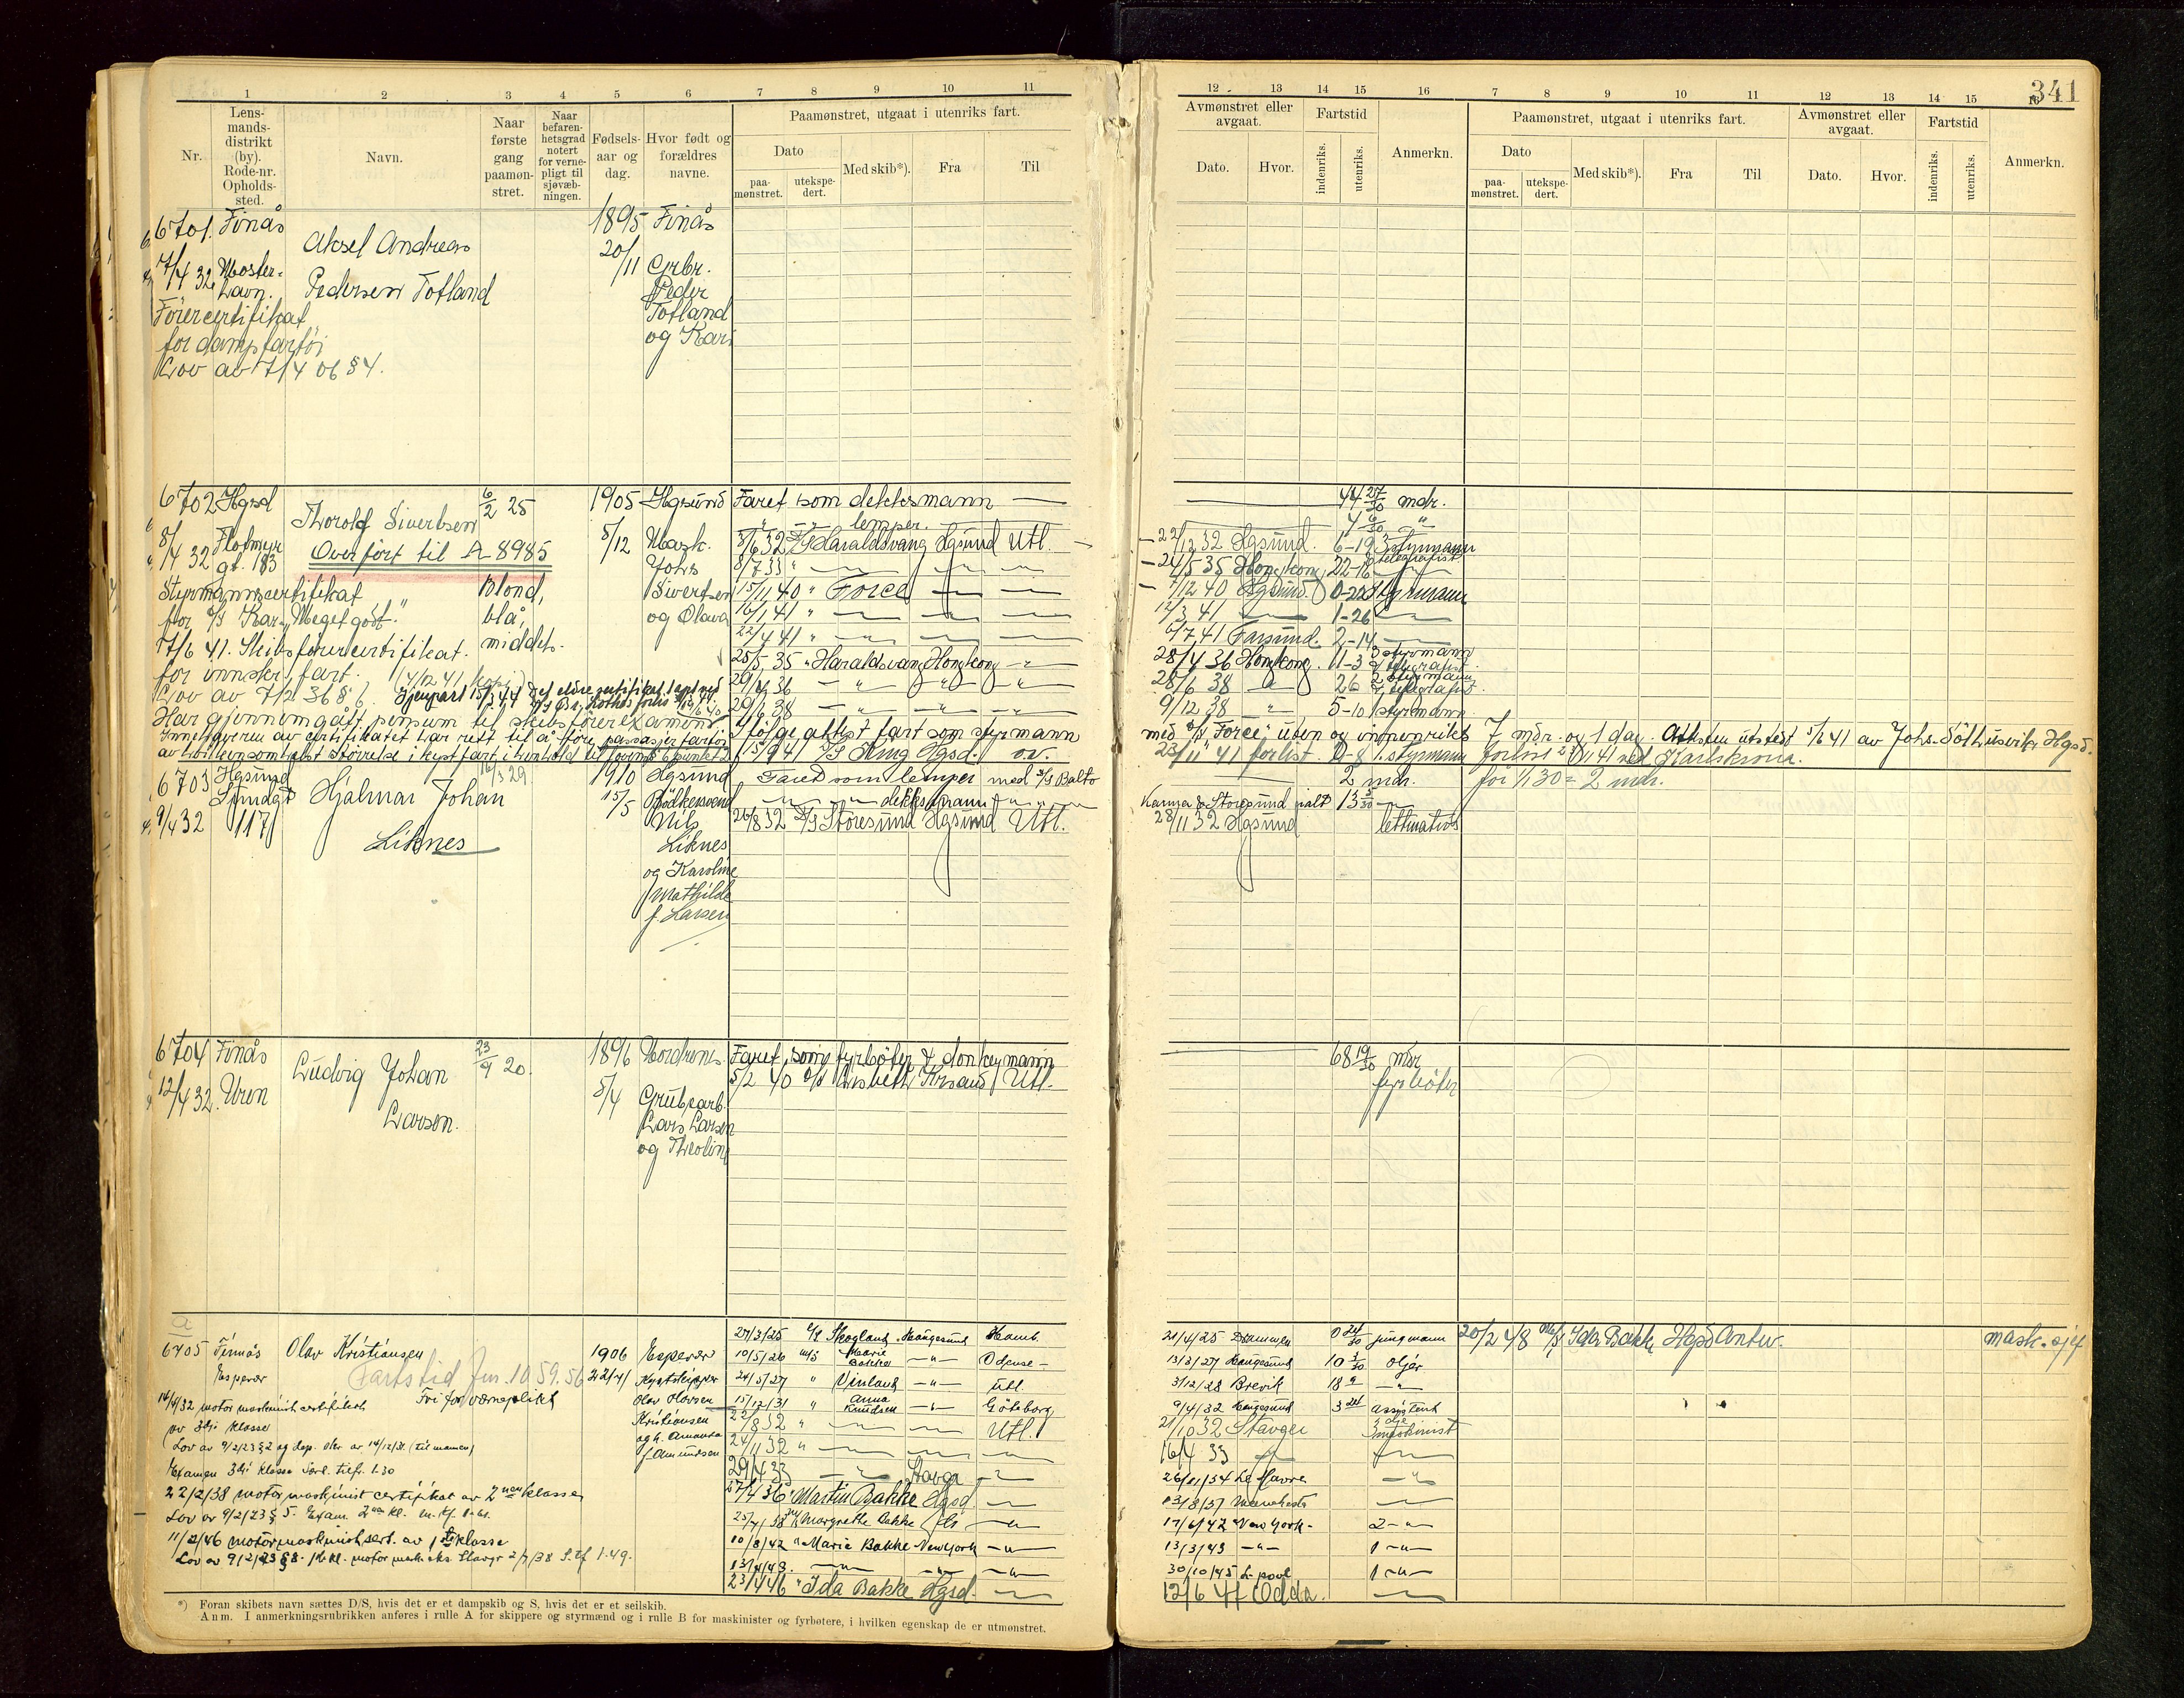 341
1 2 3 4 5 6 7 8 9 10 11
12 13 14 15 16 7 8 9 10 11 12 13 14 15 16
Nr.
Lens-
mands-
distrikt
(by).
Rode-nr.
Opholds-
sted.
Navn.
Naar
første
gang
paamøn-
stret.
Naar
befaren-
hetsgrad
notert
for verne-
pligt til
sjøvæb-
ningen.
Fødsels-
aar og
dag.
Hvor født og
forældres
navne.
Paamønstret, utgaat i utenriks fart.
Dato
paa-
mønstret.
utekspe-
dert.
Med skib*).
Fra
Til
Avmønstret eller
avgaat.
Dato.
Hvor.
Fartstid
indenriks.
utenriks.
Anmerkn.
Paamønstret, utgaat i utenriks fart.
Dato
paa-
mønstret.
utekspe-
dert.
Med skib*).
Fra
Til
Avmønstret eller
avgaat.
Dato.
Hvor.
Fartstid
indenriks.
utenriks.
Anmerkn.
6701. Finås Aksel Andreas 1895 Finås
7/4 32 Moster-
havn. Pedersen Totland 20/11 Grbr.
Peder
Totland
og Kari
Förercertifikat
for dampfartöi
Lov av 7/4 06 § 4.
6702 Hgsd Thorolf Sivertsen 6/2 25 1905 Hgsund Faret som dekksmann — 44 27/30 mdr.
" lemper.
8/4 32 Flotmyr
gt. 183 Overført til A-8985 5/12 Mask.
Johs
Sivertsen
og Olava
5/6 32 D/S Haraldsvang Hgsund Utl. — 22/12 32 Hgsund. 6-19 3 styrmann
8/7 33 " 24/5 35 Hongkong 22-16 telegrafist
15/11 40 " Force 7/12 40 Hgsund. 0-22 Styrmann
16/1 41 " 12/3 41 1-26
22/4 41 " 6/7 41 Farsund. 2-14
25/5 35 " Haraldsvang Hongkong 28/4 36 Hongkong. 11-3 3 styrmann
29/4 36 28/6 38 26 2 styrmann
29/7 38 9/12 38 5-10 1 styrmann
Styrmannscertifikat Blond,
for D/S Kar. "Meget godt." blå,
17/6 41. Skibsförercertifikat middels.
for innskr. fart.
Lov av 7/2 36 § 6.
Har gjennemgått pensum til skibsförerexamen
Innehaveren av certifikatet har rett til å føre passasjerfartøi
av hvilkensomhelst størrelse i kystfart i henhold til lovens § 6 punkt 2
Ifölge attest fart som styrmann med D/S Force; uten og innenriks 7 mdr. og 1 dag. Attesten utstedt 5/6 41 av Johs. Döthusvik, Hgsd.
15/9 41 D/S Ring Hgsd. 23/11 41 forlist 2-8 1. styrmann forlist 23/11 41 ved Karlskrona.
6703 Hgsund Hjalmar Johan 16/3 29 1910 Hgsund Faret som lemper med D/S Balto 2 mdr. før 1/1 30 = 2 mdr.
Strandgt
9/4 32 117 Liknes 15/5 Bödkersvend
Nils
Liknes
og Karoline
Mathilde
f. Larsen
dekksmann Karma & Storesund ialt 13 5/30
26/8 32 D/S Storesund Hgsund Utl. 28/11 32 Hgsund lettmatros
6704 Finås Ludvig Johan 23/9 20. 1896 Nordrems. Faret som fyrböter & donkeymann 68 19/30 mdr
12/4 32. Uren Larsen. 5/4 Grubearb.
Lars Larsen
og Theoline
5/2 40 D/S Lisbeth Krsand Utl. fyrböter
a
6705 Finnås Olav Kristiansen 1906 Espevær
Espevær Fartstid Jnr. 1059.56 22/4 Kystskipper
Fri for værneplikt Olav Olavsen
Kristiansen
og h. Amanda
f. Amundsen
14/4/32 motor maskinist certifikat
av 3dje klasse
Lov av 9/2/23 § 2 og dep. skr. av 14/12/31 (til mannen)
Examen 3dje klasse Karl. tilfr. 1.30
22/2/38 motor maskinist certifikat av 2nen klasse
Lov av 9/2/23 § 5. Exam. 2nen kl.
11/2/46 motor maskinist sert. av 1ste klasse
Lov av 9/2/23 § 8. 1ste kl. motor mask. eks. Stavgr 2/7/38 S.tf 1.49.
27/3/25 D/S Skogland Haugesund Hamb. 21/4/25 Drammen 0 24/30 jungmann
10/5/26 M/S Marie Bakke —"— Odense 13/3/27 Haugesund 10 3/30 oljer
24/5/27 " Vinland —"— Utl. 3/12/28 Brevik 18 9 —"—
15/12/31 " Anna Knudsen —"— Göteborg 9/4/32 Haugesund 3 24 assistent
22/8 32 " Utl. 21/10 32 Stavger 3dje maskinist
24/11 32 " 16/4 33
29/4 33 Stavgr 26/01/34 Le Havre —"—
27/4 36 " Martin Bakke Hgsd 13/8/37 Manchester
25/7/38 M/S Margrethe Bakke 17/6/42 New York - 2 —"—
10/8/42 " Marie Bakke New York —"— 13/3/43 —"— 1 —"—
13/4/43. —"— 30/10/45 L-pool 1 —"—
23/4 46 " Ida Bakke Hgsd. 12/6 47 Odda.
20/2 48 M/S Ida Bakke Hgsd Antw. mask.sjef
*) Foran skibets navn sættes D/S, hvis det er et dampskib og S, hvis det er et seilskib.
Anm. I anmerkningsrubrikken anføres i rulle A for skippere og styrmænd og i rulle B for maskinister og fyrbøtere, i hvilken egenskap de er utmønstret.